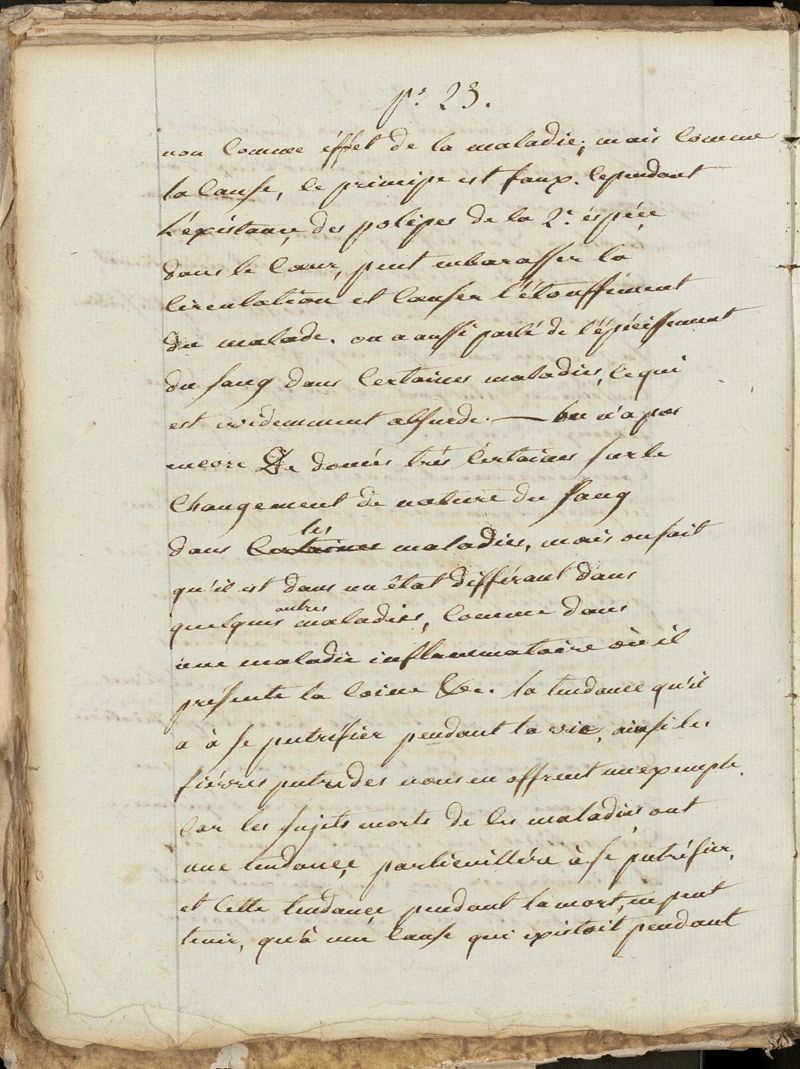 p.r 23.
non comme éffet de la maladie; mais comme
la cause, le principe est faux. Cependant
L'existance, des polipes de la 2.e éspéce,
dans le Cœur, peut embarasser la
circulation et causer l'étouffement
du malade. on a aussi parlé de l'épaissisement
du sang dans certaines maladies, ce qui
est evidemment absurde. — On n'a pas
encore De donnés très certaines sur le
changement de nature du sang
dans certaines les maladies, mais on sait
qu'il est dans un état différant dans
quelques autres maladies, comme dans
une maladie inflammatoire où il
présente la coine &c. la tendance qu'il
a à se putréfier pendant la vie, ainsi les
fièvres putrides nous en offrent un exemple.
Car les sujets morts de ces maladies ont
une tendance, particuillére à se putréfier,
et cette tendance, pendant la mort, ne peut
tenir, qu'à une cause qui existoit pendant